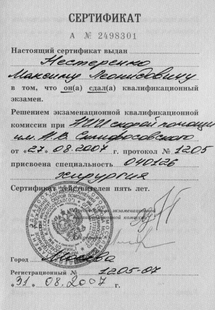 СЕРТИФИКАТ
А № 2498301
Настоящий сертификат выдан
Нестеренко
Максиму Леонидовичу
в том, что он(а) сдал(а) квалификационный
экзамен.
Решением экзаменационной квалификационной
комиссии при НИИ скорой помощи
им. Н.В. Склифосовского
от «27.08.2007 г. протокол № 1205
присвоена специальность 040126
хирургия
Сертификат действителен пять лет.
экзаменационной
Город Москва
Регистрационный № 1205-07
«31» 08. 2007 г.